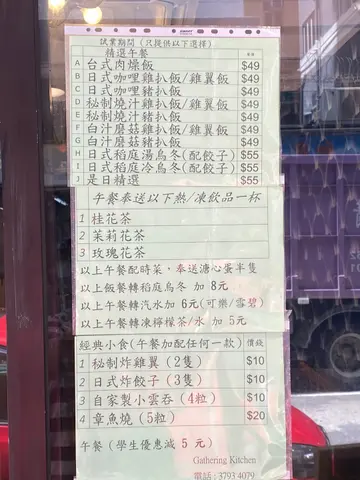 試業期間 (只提供以下選擇)
精選午餐
A 台式肉燥飯 $49
B 日式咖哩雞扒飯/雞翼飯 $49
C 日式咖哩豬扒飯 $49
D 秘制燒汁雞扒飯/雞翼飯 $49
E 秘制燒汁豬扒飯 $49
F 白汁磨菇雞扒飯/雞翼飯 $49
G 白汁磨菇豬扒飯 $49
H 日式稻庭湯烏冬(配餃子) $55
I 日式稻庭冷烏冬(配餃子) $55
J 是日精選 $55
午餐奉送以下熱/凍飲品一杯
1 桂花茶
2 茉莉花茶
3 玫瑰花茶
以上午餐配時菜，奉送溏心蛋半隻
以上飯餐轉稻庭烏冬 加 8元
以上午餐轉汽水 加 6元(可樂/雪碧)
以上午餐轉凍檸檬茶/水 加 5元
經典小食(午餐加配任何一款) 價錢
1 秘制炸雞翼 (2隻) $10
2 日式炸餃子 (3隻) $10
3 自家製小雲吞 (4粒) $10
4 章魚燒 (5粒) $20
午餐 (學生優惠減 5 元)
Gathering Kitchen
電話 : 3793 4079